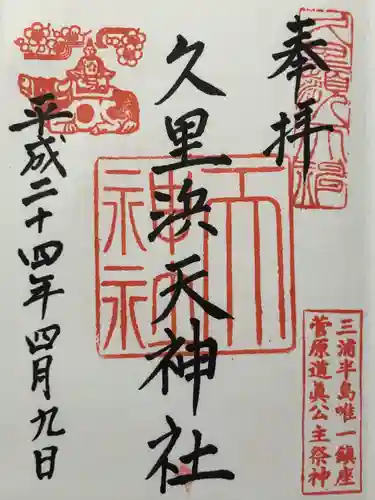 奉拝
久里浜天神社
平成二十四年四月九日
三浦半島唯一鎮座
菅原道眞公主祭神